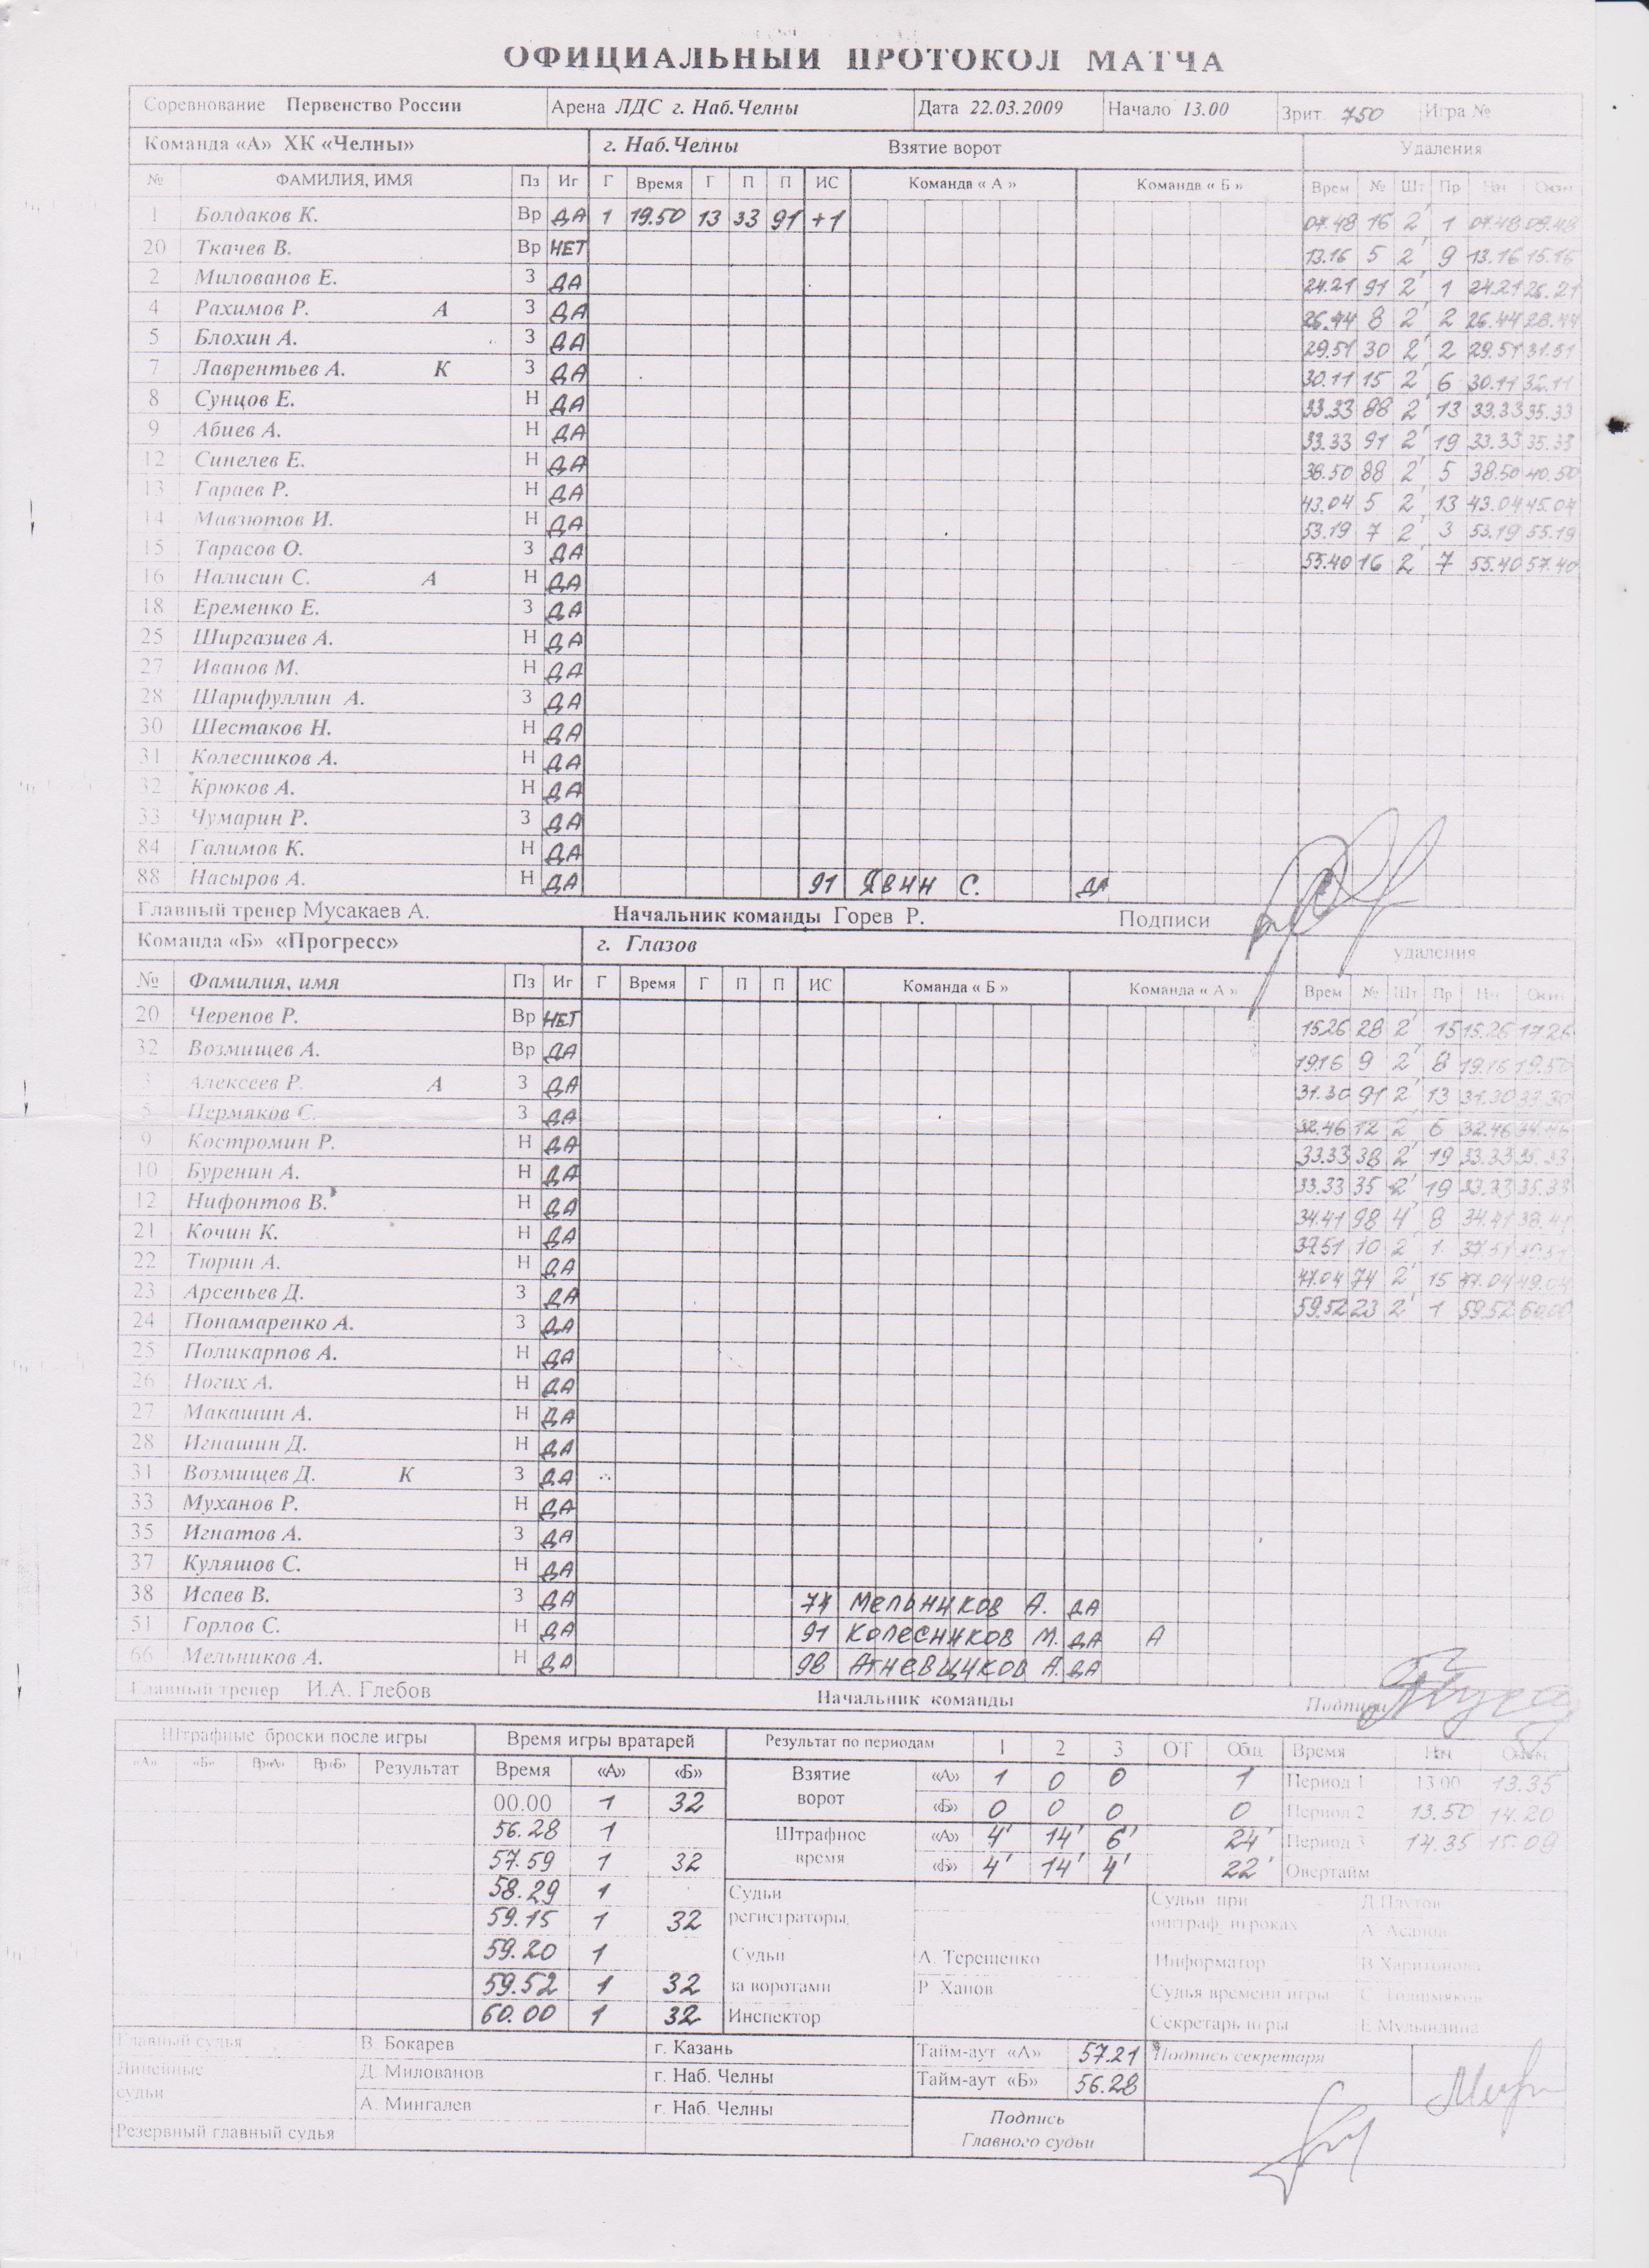 ОФИЦИАЛЬНЫЙ ПРОТОКОЛ МАТЧА
Соревнование Первенство России Арена ЛДС г. Наб.Челны Дата 22.03.2009 Начало 13.00 Зрит. 750 Игра №
Команда «А» ХК «Челны» г. Наб.Челны Взятие ворот Удаления
№ ФАМИЛИЯ, ИМЯ Пз Иг Г Время Г П П ИС Команда « А » Команда « Б » Врем № Шт Пр Нач Окон
1 Болдаков К. Вр ДА 1 19.50 13 33 91 +1 07.48 16 2' 1 07.48 09.48
20 Ткачев В. Вр НЕТ 13.16 5 2' 9 13.16 15.16
2 Милованов Е. З ДА 24.21 91 2' 1 24.21 26.21
4 Рахимов Р. А З ДА 26.44 8 2' 2 26.44 28.44
5 Блохин А. З ДА 29.51 30 2' 2 29.51 31.51
7 Лаврентьев А. К З ДА 30.11 15 2' 6 30.11 32.11
8 Сунцов Е. Н ДА 33.33 88 2' 13 33.33 35.33
9 Абиев А. Н ДА 33.33 91 2' 19 33.33 35.33
12 Синелев Е. Н ДА 38.50 88 2' 5 38.50 40.50
13 Гараев Р. Н ДА 43.04 5 2' 13 43.04 45.04
14 Мавзютов И. Н ДА 53.19 7 2' 3 53.19 55.19
15 Тарасов О. З ДА 55.40 16 2' 7 55.40 57.40
16 Налисин С. А Н ДА
18 Еременко Е. З ДА
25 Ширгазиев А. Н ДА
27 Иванов М. Н ДА
28 Шарифуллин А. З ДА
30 Шестаков Н. Н ДА
31 Колесников А. Н ДА
32 Крюков А. Н ДА
33 Чумарин Р. З ДА
84 Галимов К. Н ДА
88 Насыров А. Н ДА 91 Явни С. ДА
Главный тренер Мусакаев А. Начальник команды Горев Р. Подписи
Команда «Б» «Прогресс» г. Глазов удаления
№ Фамилия, имя Пз Иг Г Время Г П П ИС Команда « Б » Команда « А » Врем № Шт Пр Нач Окон
20 Черепов Р. Вр НЕТ 15.26 28 2' 15 15.26 17.26
32 Возмищев А. Вр ДА 19.16 9 2' 8 19.16 19.50
3 Алексеев Р. А З ДА 31.30 91 2' 13 31.30 33.30
5 Пермяков С. З ДА 32.46 12 2' 6 32.46 34.46
9 Костромин Р. Н ДА 33.33 38 2' 19 33.33 35.33
10 Буренин А. Н ДА 33.33 35 2' 19 33.33 35.33
12 Нифонтов В. Н ДА 34.41 98 4' 8 34.41 38.41
21 Кочин К. Н ДА 37.51 10 2' 1 37.51
22 Тюрин А. Н ДА 47.04 74 2' 15 47.04 49.04
23 Арсеньев Д. З ДА 59.52 23 2' 1 59.52 60.00
24 Понамаренко А. З ДА
25 Поликарпов А. Н ДА
26 Ногих А. Н ДА
27 Макашин А. Н ДА
28 Игнашин Д. Н ДА
31 Возмищев Д. К З ДА
33 Муханов Р. Н ДА
35 Игнатов А. З ДА
37 Куляшов С. Н ДА
38 Исаев В. З ДА 74 Мельников А. ДА
51 Горлов С. Н ДА 91 Колесников М. ДА А
66 Мельников А. Н ДА 98 Агневщиков А. ДА
Главный тренер И.А. Глебов Начальник команды Подписи
Штрафные броски после игры Время игры вратарей Результат по периодам 1 2 3 ОТ Общ Время Нач Окон
«А» «Б» Вр«А» Вр«Б» Результат Время «А» «Б» Взятие ворот «А» 1 0 0 1 Период 1 13.00 13.35
00.00 1 32 «Б» 0 0 0 0 Период 2 13.50 14.20
56.28 1 Штрафное время «А» 4' 14' 6' 24' Период 3 14.35 15.09
57.59 1 32 «Б» 4' 14' 4' 22' Овертайм
58.29 1 Судьи Судьи при
59.15 1 32 регистраторы, оштраф. игроках А. Асанов
59.20 1 Судьи А. Терещенко Информатор В Харитонова
59.52 1 32 за воротами Р Ханов Судья времени игры
60.00 1 32 Инспектор Секретарь игры Е Мульпдина
Главный судья В. Бокарев г. Казань Тайм-аут «А» 57.21 Подпись секретаря
Линейные судьи Д. Милованов г. Наб. Челны Тайм-аут «Б» 56.28
А. Мингалев г. Наб. Челны Подпись
Резервный главный судья Главного судьи